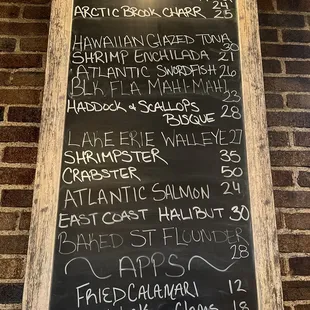 24
ARCTIC BROOK CHARR 25
HAWAIIAN GLAZED TUNA 30
SHRIMP ENCHILADA 21
ATLANTIC SWORDFISH 26
BLK FLA MAHI-MAHI 23
HADDOCK & SCALLOPS
BISQUE 28
LAKE ERIE WALLEYE 27
SHRIMPSTER 35
CRABSTER 50
ATLANTIC SALMON 24
EAST COAST HALIBUT 30
BAKED ST FLOUNDER 28
~APPS~
FRIED CALAMARI 12
Clams 18